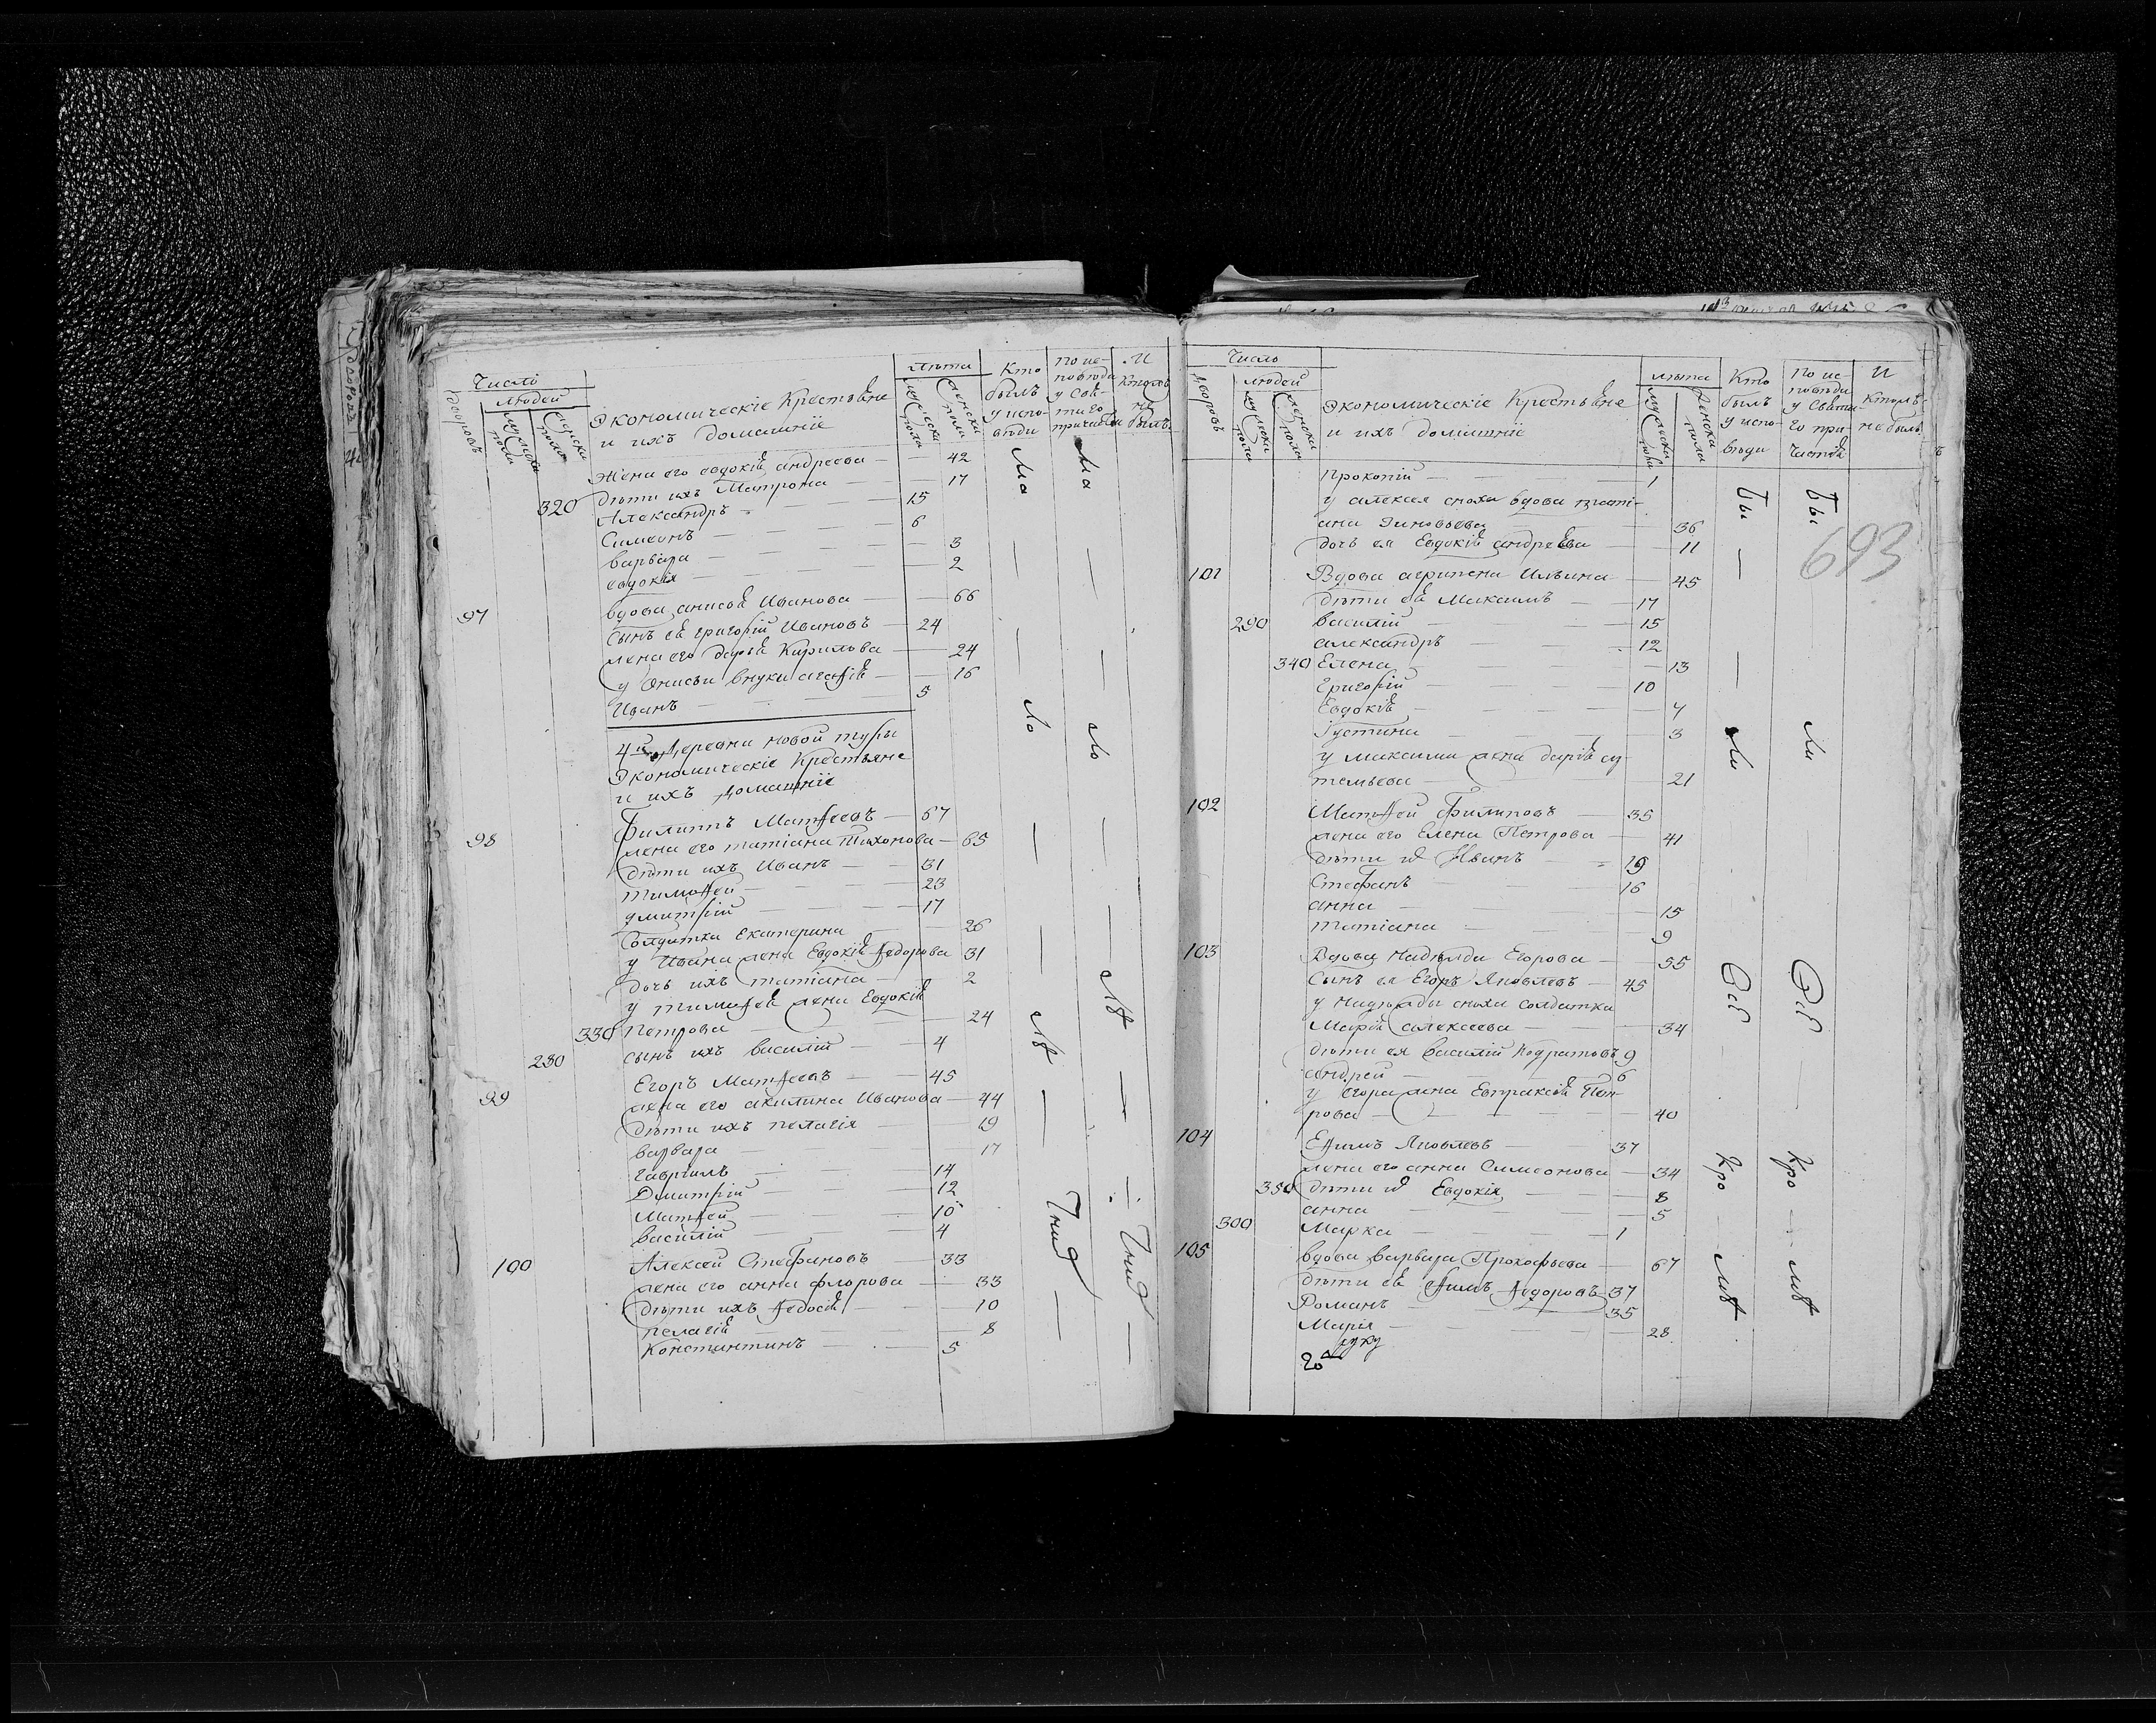 Число
людей
дворовъ
мужеска пола
женска пола
Экономическіе Крестьяне
и ихъ домашніе
лѣта
мужеска пола
женска пола
Кто былъ у исповѣди
По исповѣди у святаго причастія
И кто не былъ
Жена его евдокія андреева — 42
320 дѣти ихъ Матрона — 17
Александръ — 15
Симеонъ — 6
варвара — 3
евдокія — 2
97 вдова анисья Иванова — 66
сынъ ея григорій Ивановъ — 24
жена его дарья Кирилова — 24
у Онисьи внуки агафія — 16
Иванъ — 5
4й Деревни новой туры
Экономическіе Крестьяне
и ихъ домашніе
98 Филиппъ Матѳеевъ — 67
жена его татіана Тихонова — 65
дѣти ихъ Иванъ — 31
тимоѳей — 23
дмитрій — 17
Солдатка екатерина — 26
у Ивана жена Евдокія ѳедорова 31
дочь ихъ татіана — 2
у тимоѳея жена Евдокія
330 Петрова — 24
280 сынъ ихъ василій — 4
99 Егоръ Матѳеевъ — 45
жена его акилина Иванова — 44
дѣти ихъ пелагія — 19
варвара — 17
гавріилъ — 14
Димитрій — 12
Матѳей — 10
василій — 4
100 Алексей Стефановъ — 33
жена его анна флорова — 33
дѣти ихъ ѳедосія — 10
пелагія — 8
Константинъ — 5
Число
людей
дворовъ
мужеска пола
женска пола
Экономическіе Крестьяне
и ихъ домашніе
лѣта
мужеска пола
женска пола
Кто былъ у исповѣди
По исповѣди у святаго причастія
И кто не былъ
693
Прокопій — 1
у алексея сноха вдова татіана
Зиновьева — 36
дочь ея Евдокія андреева — 11
101 Вдова агрипена Ильина — 45
дѣти ея Максимъ — 17
290 василій — 15
александръ — 12
340 Елена — 13
григорій — 10
Евдокія — 7
Густина — 3
у максима жена дарія ар-
темьева — 21
102 Матѳей Филиповъ — 35
жена его Елена Петрова — 41
дѣти их Иванъ — 19
Стефанъ — 16
анна — 15
татіана — 9
103 Вдова Надѣжда Егорова — 55
сынъ ея Егоръ Яковлевъ — 45
у надѣжды сноха солдатка
Марія алексеева — 34
дѣти ея василій Кодратовъ 9
андрей — 6
у егора жена Евпраксія Пет-
рова — 40
104 Еѳимъ Яковлевъ — 37
жена его анна Симеонова — 34
350 дѣти их Евдокія — 8
анна — 5
300 Марка — 1
105 вдова варвара Прокофьева — 67
дѣти ея Еѳимъ ѳедоровъ — 37
Романъ — 35
Марія — 28